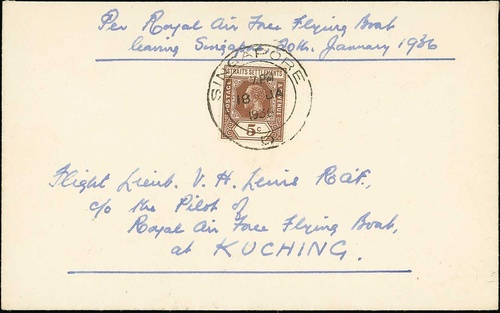 Per Royal Air Force Flying Boat
leaving Singapore 20th January 1936
SINGAPORE
7.PM
18 JA
1936
STRAITS SETTLEMENTS
POSTAGE
REVENUE
5c
Flight Lieut. V. H. Lewis RAF.,
c/o the Pilot of
Royal Air Force Flying Boat,
at KUCHING.